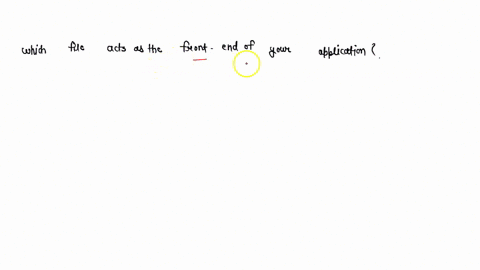 which file acts as the front-end of your application?